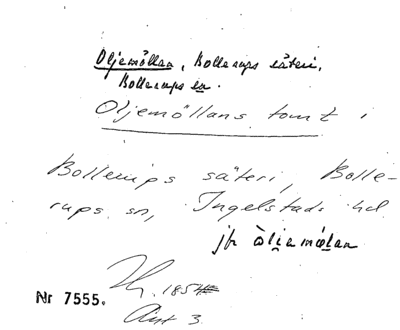 Oljemöllan, Bollerups säteri,
Bollerups sn.
Oljemöllans tomt i
Bollerups säteri, Bolle-
rups sn, Ingelstads hd
jfr
Nr 7555. 1854
3.